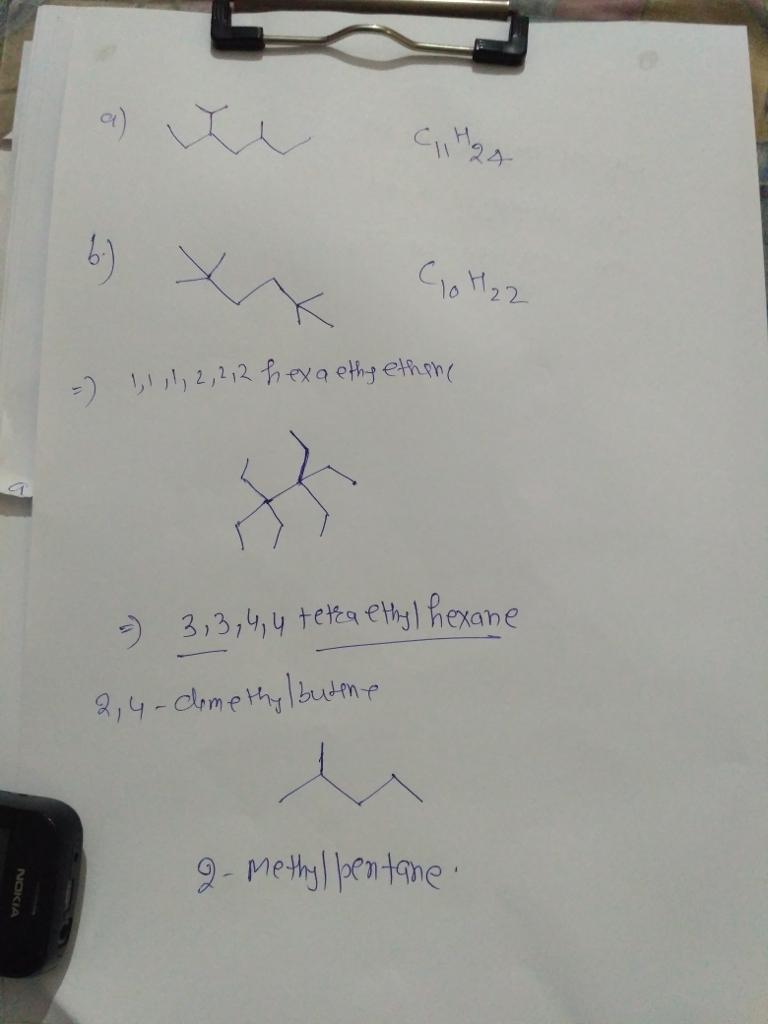 a) C11H24
b.) C10H22
=) 1,1,1,2,2,2 hexaethyethane
=) 3,3,4,4 tetraethyl hexane
2,4-dimethylbutane
2-Methylpentane.
a
NOKIA